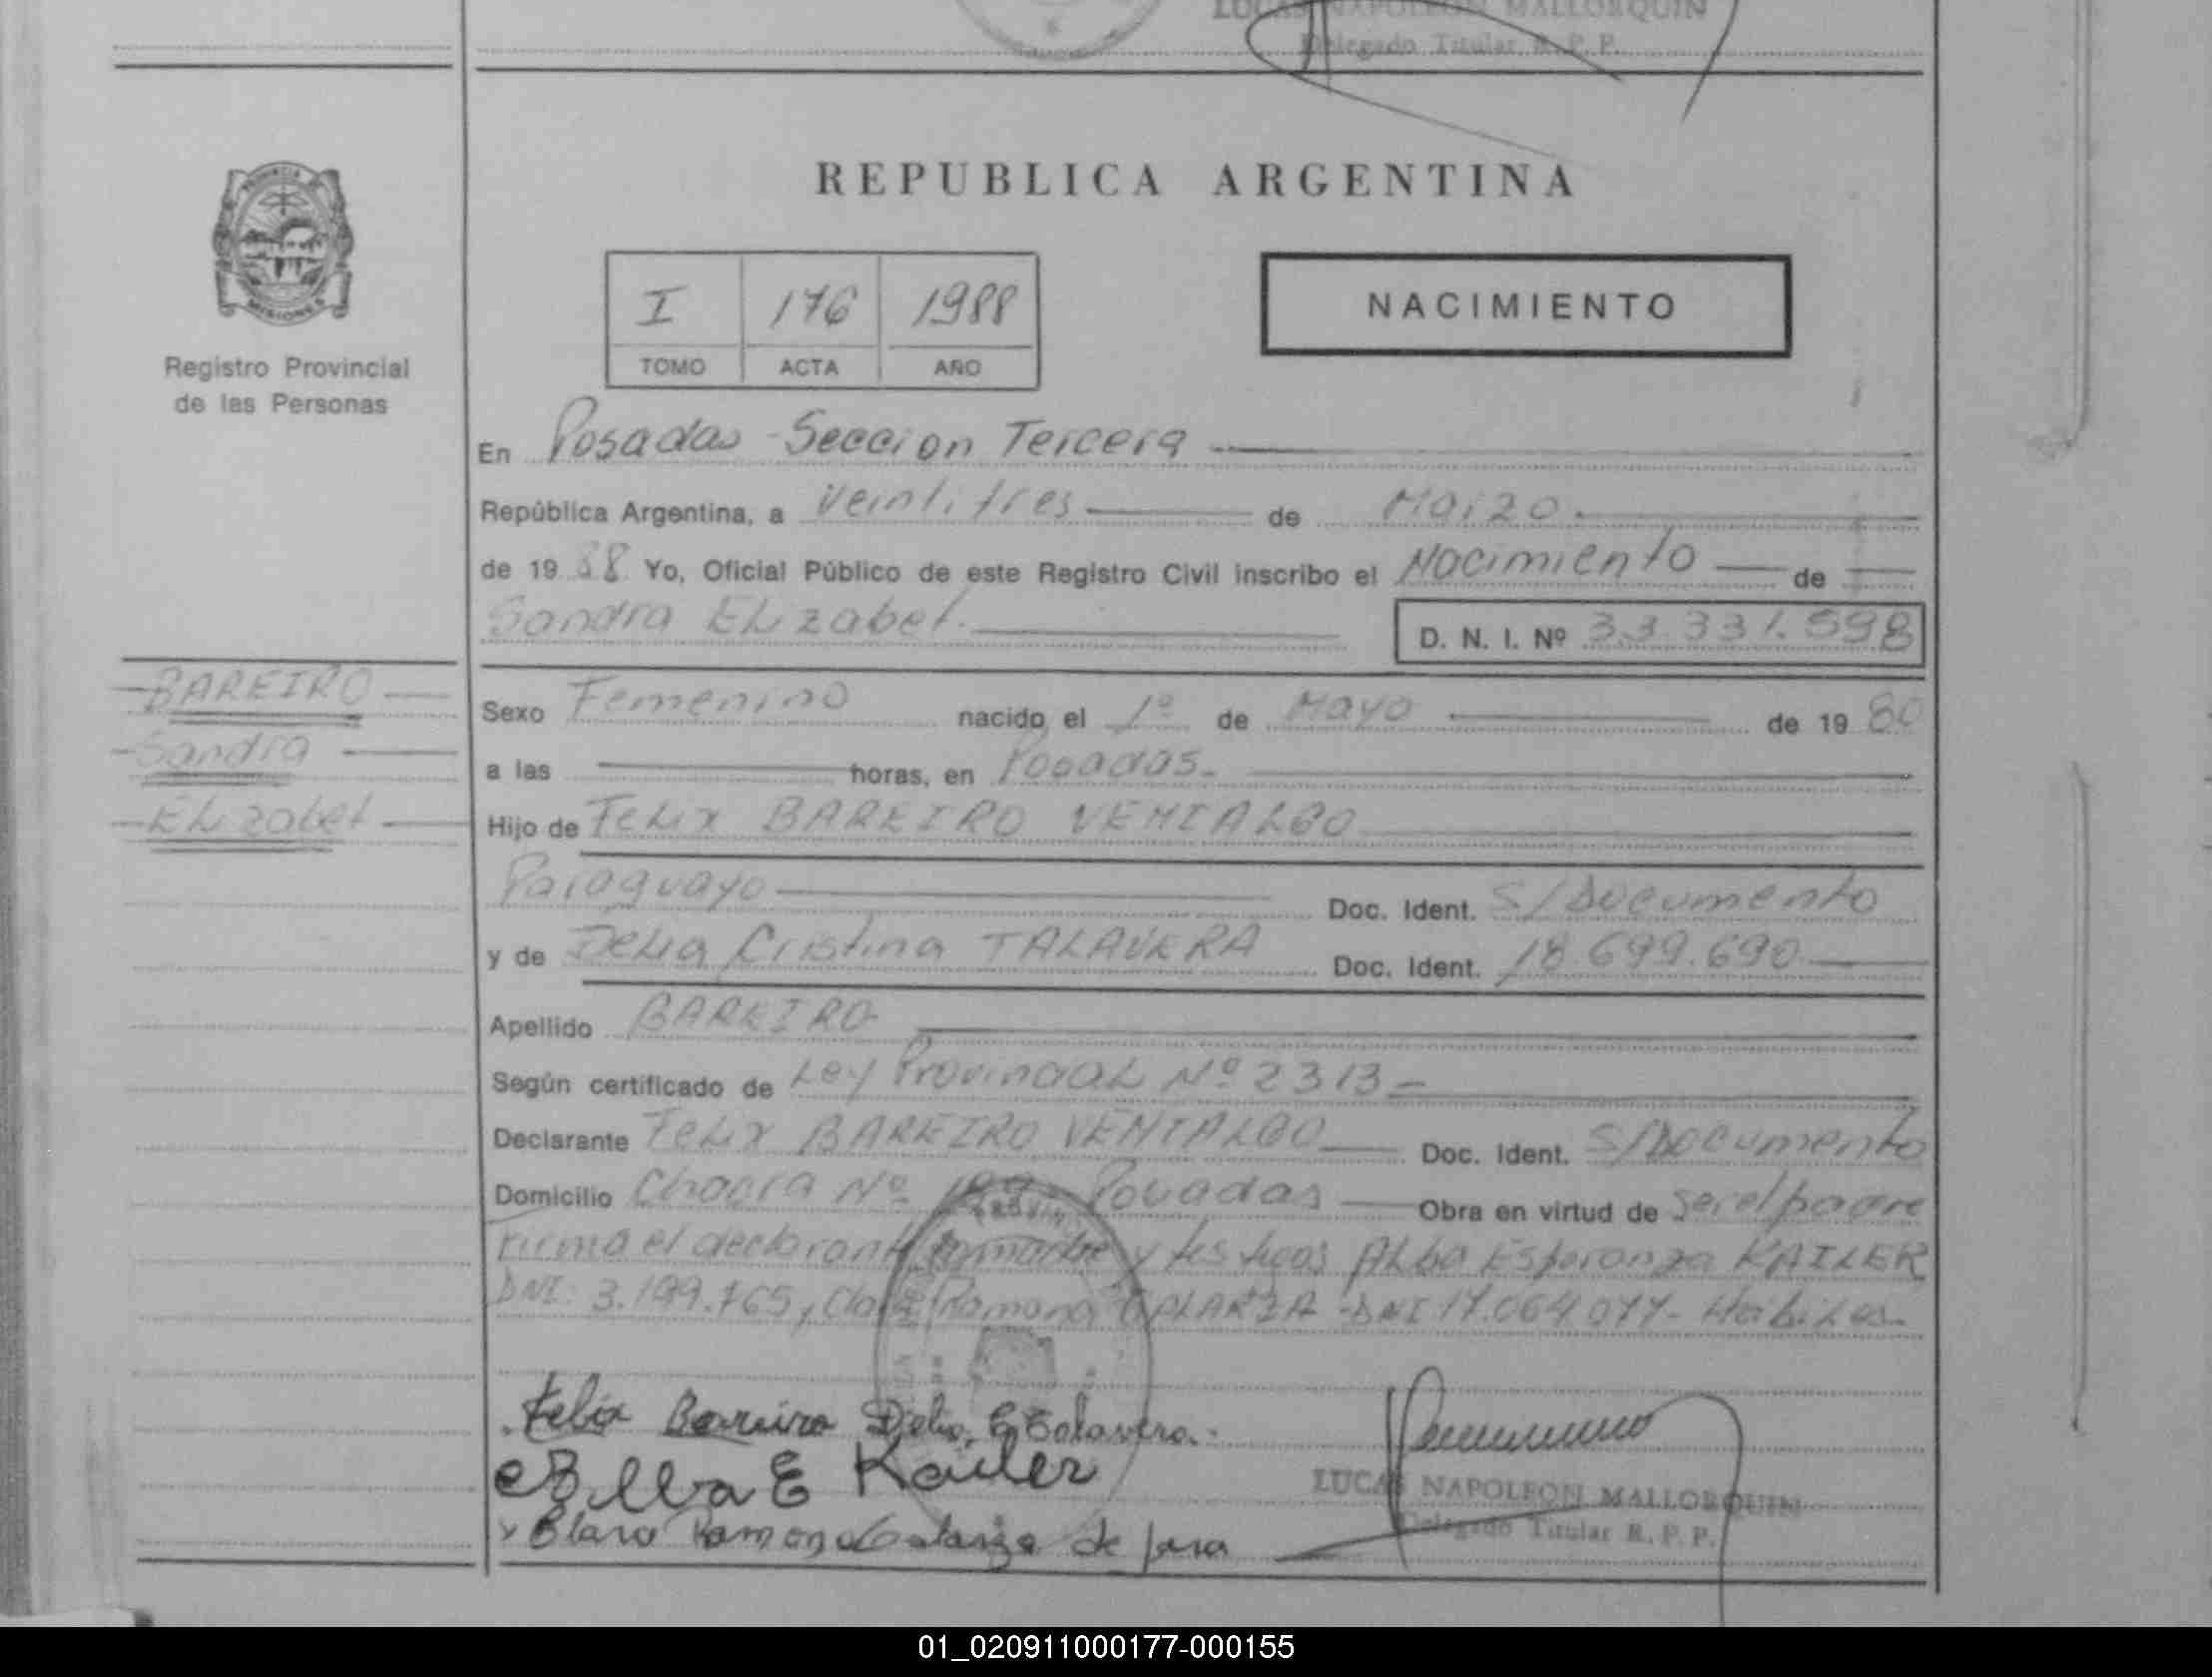 LUCAS NAPOLEON MALLORQUIN
Delegado Titular R. P. P.
PROVINCIA DE
MISIONES
Registro Provincial
de las Personas
REPUBLICA ARGENTINA
I 176 1988
TOMO ACTA AÑO
NACIMIENTO
En Posadas - Seccion Tercera
República Argentina, a Veintitres de Marzo.
de 19 88 Yo, Oficial Público de este Registro Civil inscribo el Nacimiento de
Sandra Elizabet. D. N. I. Nº 33.331.598
BAREIRO
Sandra
Elizabet
Sexo Femenino nacido el 1º de Mayo de 19 80
a las horas, en Posadas.
Hijo de Felix BAREIRO VENIALGO
Paraguayo Doc. Ident. S/Documento
y de Delia Cristina TALAVERA Doc. Ident. 18.699.690
Apellido BAREIRO
Según certificado de Ley Provincial Nº 2313
Declarante Felix BAREIRO VENIALGO Doc. Ident. S/Documento
Domicilio Chacra Nº Posadas Obra en virtud de ser el padre
Firma el declarante y testigos Alba Esperanza KAILER
DNI: 3.199.765, Clara Ramona GALARZA - DNI 17.064.077 - Habiles.
Felix Bareiro Delia C Talavera.
Alba E Kailer
Clara Ramona Galarza de Jara
LUCAS NAPOLEON MALLORQUIN
Delegado Titular R. P. P.
01_020911000177-000155